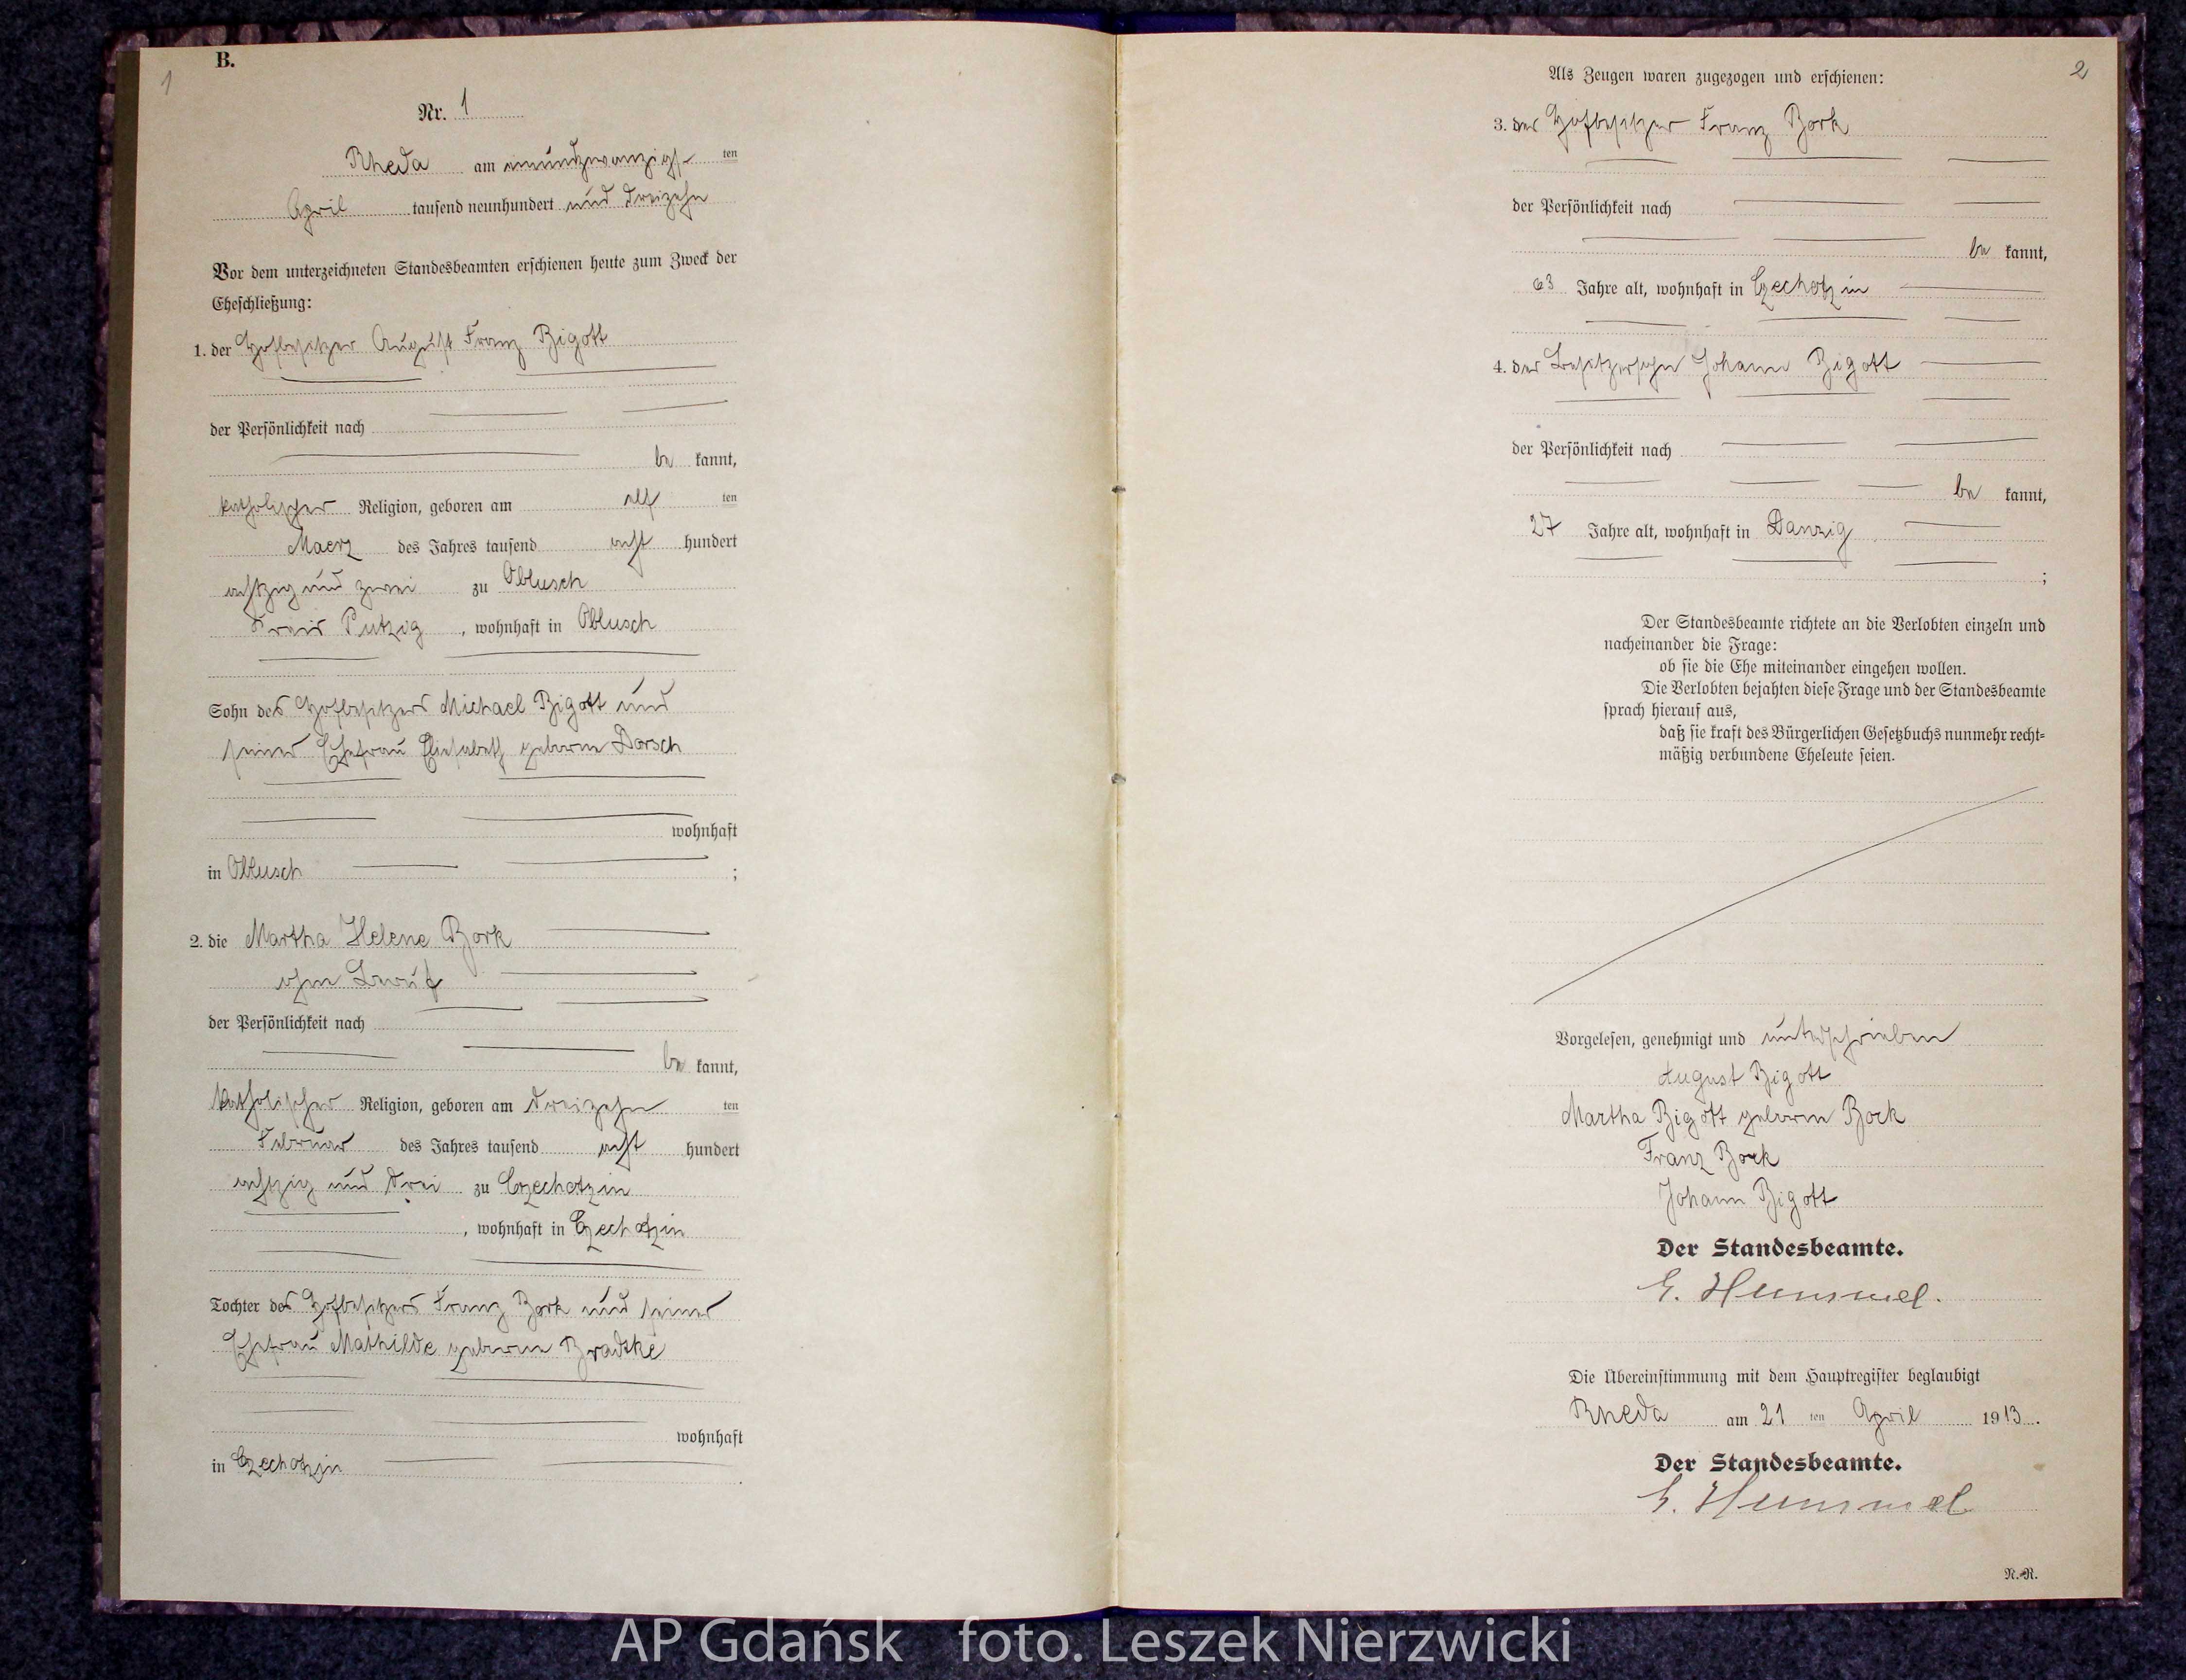 1
B.
Nr. 1
Rheda am einundzwanzigs- ten
April tausend neunhundert und dreizehn
Vor dem unterzeichneten Standesbeamten erschienen heute zum Zweck der
Eheschließung:
1. der Hofbesitzer August Franz Bigott
der Persönlichkeit nach
be kannt,
katholischer Religion, geboren am elf ten
Maerz des Jahres tausend acht hundert
achtzig und zwei zu Oblusch
Kreis Putzig, wohnhaft in Oblusch
Sohn des Hofbesitzers Michael Bigott und
seiner Ehefrau Elisabeth geborene Dorsch
wohnhaft
in Oblusch ;
2. die Martha Helene Bork
ohne Beruf
der Persönlichkeit nach
be kannt,
katholischer Religion, geboren am dreizehn ten
Februar des Jahres tausend acht hundert
achtzig und drei zu Czechotzin
, wohnhaft in Czechotzin
Tochter des Hofbesitzers Franz Bork und seiner
Ehefrau Mathilde geborene Bradtke
wohnhaft
in Czechotzin .
2
Als Zeugen waren zugezogen und erschienen:
3. der Hofbesitzer Franz Bork
der Persönlichkeit nach
be kannt,
63 Jahre alt, wohnhaft in Czechotzin
4. der Besitzersohn Johann Bigott
der Persönlichkeit nach
be kannt,
27 Jahre alt, wohnhaft in Danzig
;
Der Standesbeamte richtete an die Verlobten einzeln und
nacheinander die Frage:
ob sie die Ehe miteinander eingehen wollen.
Die Verlobten bejahten diese Frage und der Standesbeamte
sprach hierauf aus,
daß sie kraft des Bürgerlichen Gesetzbuchs nunmehr recht-
mäßig verbundene Eheleute seien.
Vorgelesen, genehmigt und unterschrieben
August Bigott
Martha Bigott geborene Bork
Franz Bork
Johann Bigott
Der Standesbeamte.
E. Hummel.
Die Übereinstimmung mit dem Hauptregister beglaubigt
Rheda am 21 ten April 1913.
Der Standesbeamte.
E. Hummel
N.-R.
AP Gdańsk foto. Leszek Nierzwicki